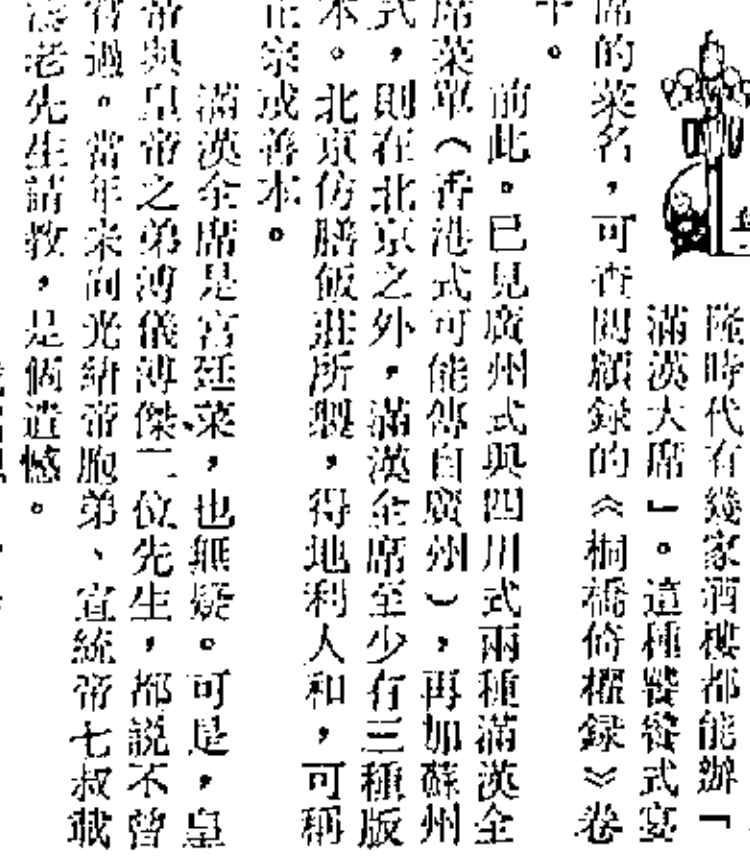 隆時代有幾家酒樓都能辦「
滿漢大席」。這種饕餮式宴
席的菜名，可查閱顧録的《桐橋倚櫂録》卷
十。
前此。已見廣州式與四川式兩種滿漢全
席菜單（香港式可能傳自廣州），再加蘇州
式，則在北京之外，滿漢全席至少有三種版
本。北京仿膳飯莊所製，得地利人和，可稱
正宗或善本。
滿漢全席是宮廷菜，也無疑。可是，皇
帝與皇帝之弟溥儀溥傑二位先生，都説不曾
嘗過。當年未向光緒帝胞弟、宣統帝七叔載
濤老先生請教，是個遺憾。